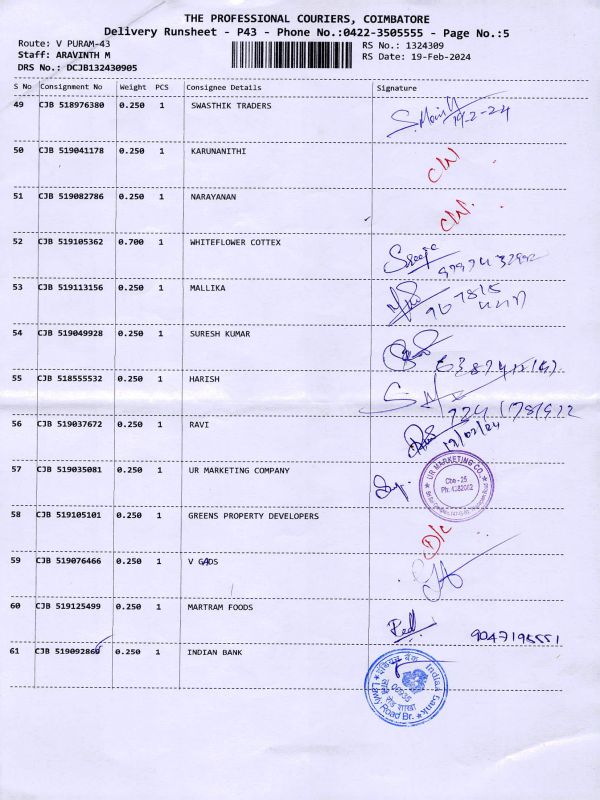 THE PROFESSIONAL COURIERS, COIMBATORE
Delivery Runsheet - P43 - Phone No.:0422-3505555 - Page No.:5
Route: V PURAM-43
RS No.: 1324309
Staff: ARAVINTH M
RS Date: 19-Feb-2024
DRS No.: DCJB132430905
S No Consignment No Weight PCS Consignee Details Signature
49 CJB 518976380 0.250 1 SWASTHIK TRADERS
19-2-24
50 CJB 519041178 0.250 1 KARUNANITHI
51 CJB 519082786 0.250 1 NARAYANAN
52 CJB 519105362 0.700 1 WHITEFLOWER COTTEX
53 CJB 519113156 0.250 1 MALLIKA
54 CJB 519049928 0.250 1 SURESH KUMAR
55 CJB 518555532 0.250 1 HARISH
56 CJB 519037672 0.250 1 RAVI
19/02/24
57 CJB 519035081 0.250 1 UR MARKETING COMPANY
UR MARKETING CO.
Cbe - 25
58 CJB 519105101 0.250 1 GREENS PROPERTY DEVELOPERS
D/C
59 CJB 519076466 0.250 1 V GADS
60 CJB 519125499 0.250 1 MARTRAM FOODS
61 CJB 519092860 0.250 1 INDIAN BANK
इंडियन बैंक Indian Bank
00935
Lawly Road Br.